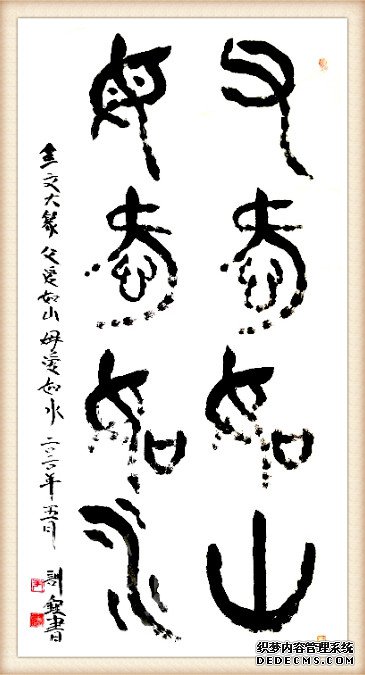 父爱如山
母爱如水
金文大篆 父爱如山 母爱如水 二〇二〇年五月 書
织梦内容管理系统
DEDECMS.COM